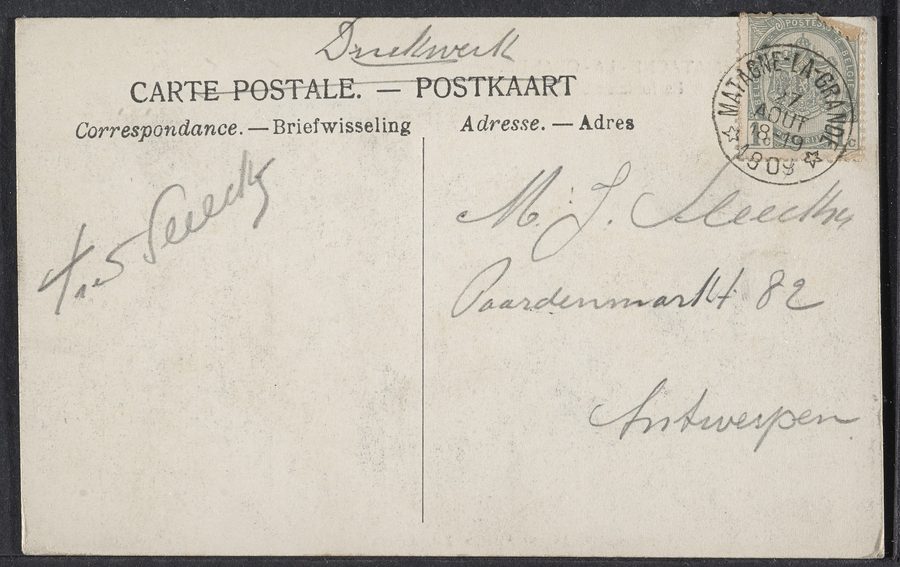 Drukwerk
CARTE POSTALE. — POSTKAART
Correspondance. — Briefwisseling
Adresse. — Adres
MATAGNE-LA-GRANDE
27
AOUT
18-19
1909
POSTES
M. J. Sleeckx
Paardenmarkt 82
Antwerpen